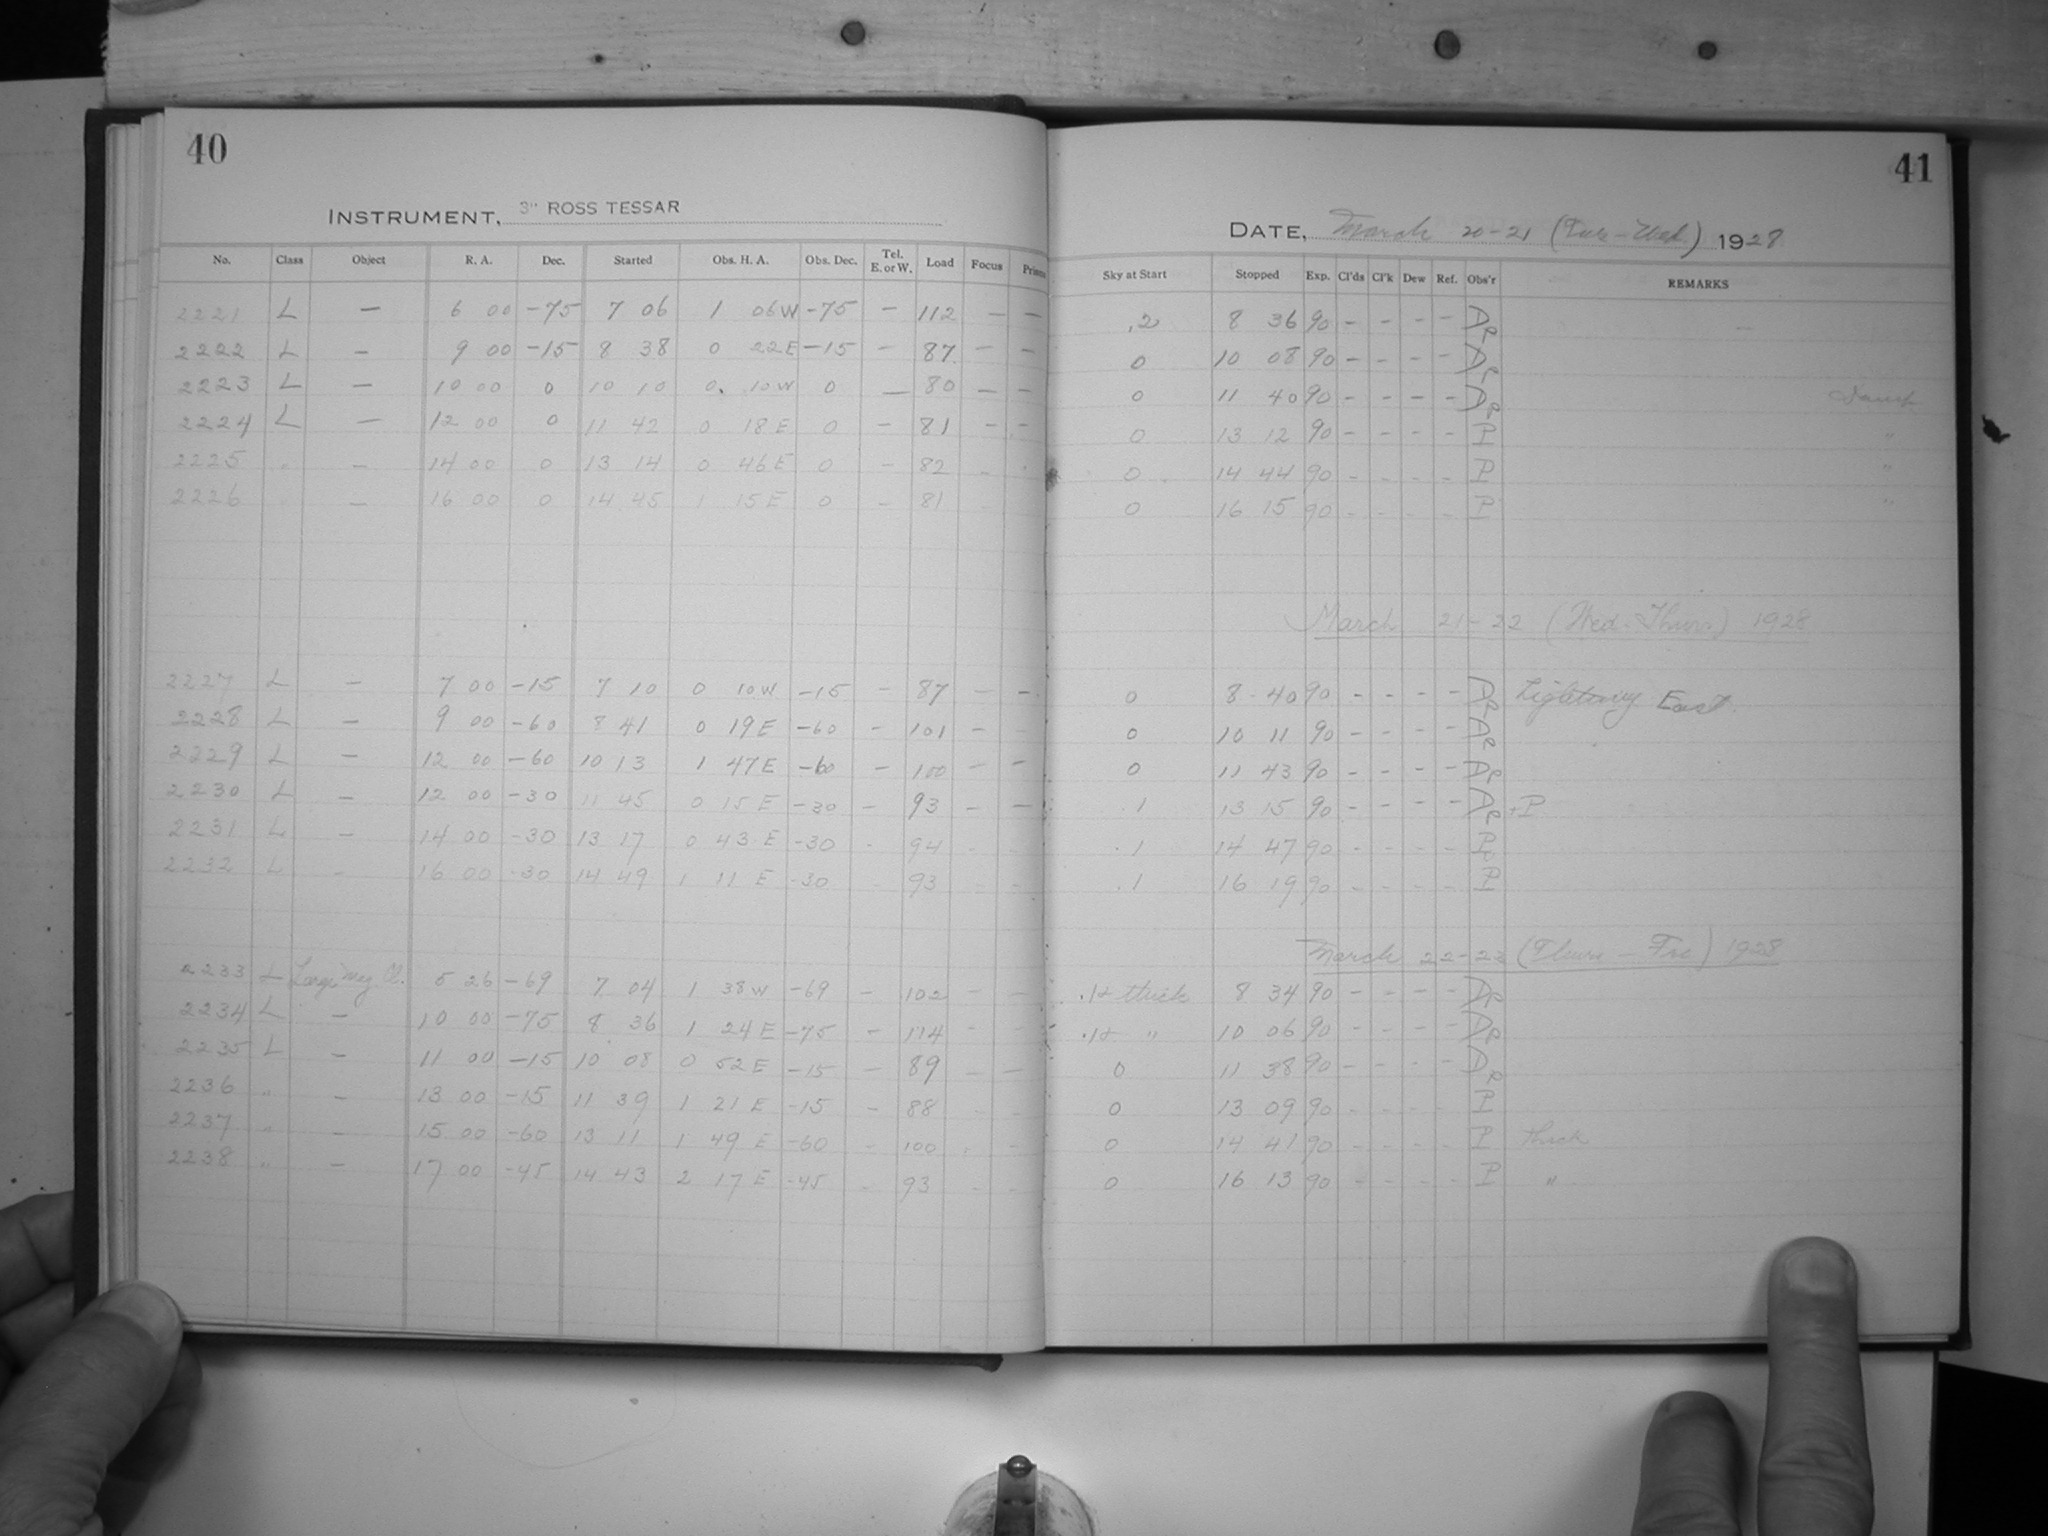 40
INSTRUMENT, 3" ROSS TESSAR
No. Class Object R. A. Dec. Started Obs. H. A. Obs. Dec. Tel. E. or W. Load Focus
2221 L — 6 00 -75 7 06 1 06 W -75 - 112 — —
2222 L — 9 00 -15 8 38 0 22 E -15 - 87 — —
2223 L — 10 00 0 10 10 0. 10 W 0 — 80 — —
2224 L — 12 00 0 11 42 0 18 E 0 - 81 - -
2225 " — 14 00 0 13 14 0 46 E 0 - 82 -
2226 — 16 00 0 14 45 1 15 E 0 - 81
2227 L — 7 00 -15 7 10 0 10 W -15 - 87 - -
2228 L — 9 00 -60 8 41 0 19 E -60 - 101 - -
2229 L — 12 00 -60 10 13 1 47 E -60 - 100 - -
2230 L — 12 00 -30 11 45 0 15 E -30 - 93 - —
2231 L — 14 00 -30 13 17 0 43 E -30 - 94 - -
2232 L - 16 00 -30 14 49 1 11 E -30 93 - -
2233 L Large Mag Cl. 5 26 -69 7 04 1 38 W -69 - 102 - -
2234 L — 10 00 -75 8 36 1 24 E -75 - 114 - -
2235 L — 11 00 -15 10 08 0 52 E -15 — 89 - —
2236 " — 13 00 -15 11 39 1 21 E -15 - 88
2237 " — 15 00 -60 13 11 1 49 E -60 - 100 - -
2238 " — 17 00 -45 14 43 2 17 E -45 - 93 - -
41
DATE, March 20-21 (Tue-Wed.) 1928
Sky at Start Stopped Exp. Cl'ds Cl'k Dew Ref. Obs'r REMARKS
.2 8 36 90 - - - - AP
0 10 08 90 - - - - AP
0 11 40 90 - - - - AP Damp
0 13 12 90 - - - - P "
0 14 44 90 - - - - P "
0 16 15 90 - - - - P "
March 21-22 (Wed.-Thurs.) 1928
0 8 40 90 - - - - AP Lightning East.
0 10 11 90 - - - - AP
0 11 43 90 - - - - AP
.1 13 15 90 - - - - AP +P
.1 14 47 90 - - - - P
.1 16 19 90 - - - - P
March 22-23 (Thurs-Fri) 1928
.1+ thick 8 34 90 - - - - AP
.1+ " 10 06 90 - - - - AP
0 11 38 90 - - - - AP
0 13 09 90 - - - - P
0 14 41 90 - - - - P thick
0 16 13 90 - - - - P "